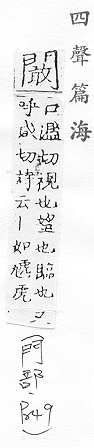 四聲篇海
闞
口濫切視也望也臨也
呼咸切詩云丨如虓虎
(門部.P849)